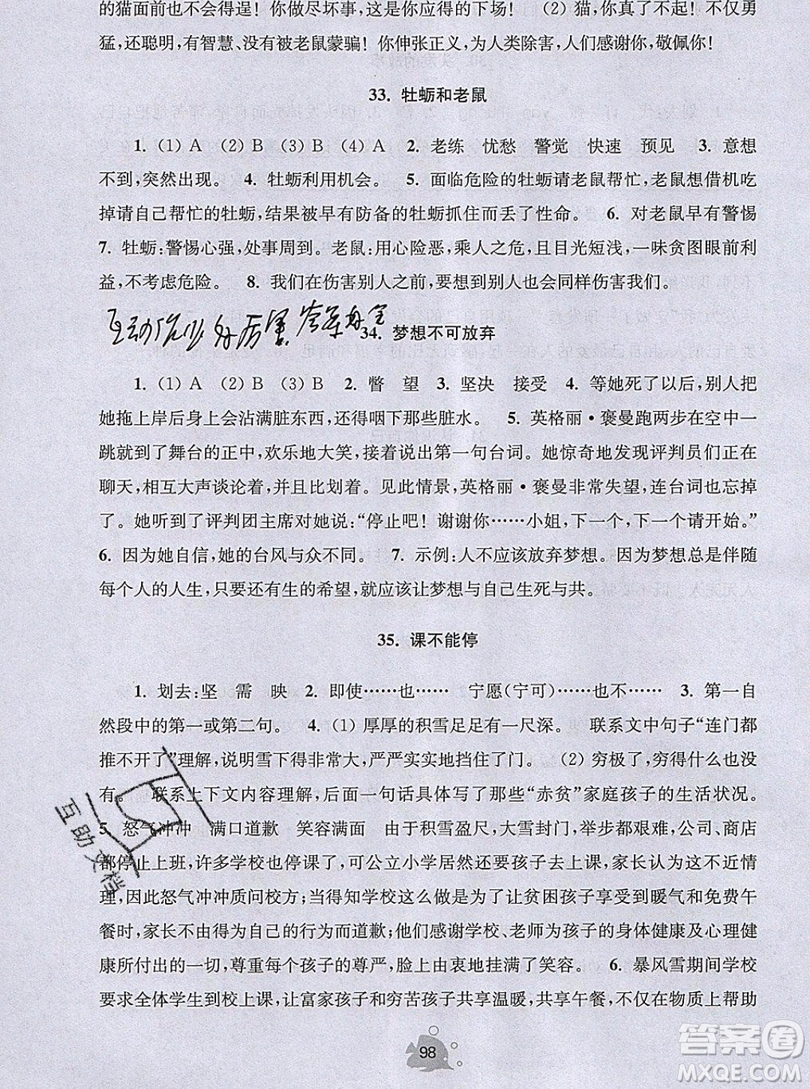 的猫面前也不会得逞!你做尽坏事,这是你应得的下场! (2) 猫,你真了不起!不仅勇
猛,还聪明,有智慧、没有被老鼠蒙骗!你伸张正义,为人类除害,人们感谢你,敬佩你!
33. 牡蛎和老鼠
1. (1) A (2) B (3) B (4) A 2. 老练 忧愁 警觉 快速 预见 3. 意想
不到,突然出现。 4. 牡蛎利用机会。 5. 面临危险的牡蛎请老鼠帮忙,老鼠想借机吃
掉请自己帮忙的牡蛎,结果被早有防备的牡蛎抓住而丢了性命。 6. 对老鼠早有警惕
7. 牡蛎:警惕心强,处事周到。老鼠:用心险恶,乘人之危,且目光短浅,一味贪图眼前利
益,不考虑危险。 8. 我们在伤害别人之前,要想到别人也会同样伤害我们。
34. 梦想不可放弃
1. (1) A (2) B (3) A 2. 瞥 望 3. 坚决 接受 4. 等她死了以后,别人把
她拖上岸后身上会沾满脏东西,还得咽下那些脏水。 5. 英格丽·褒曼跑两步在空中一
跳就到了舞台的正中,欢乐地大笑,接着念出第一句台词。她惊奇地发现评判员们正在
聊天,相互大声谈论着,并且比划着。见此情景,英格丽·褒曼非常失望,连台词也忘掉
了。她听到了评判团主席对她说:“停止吧!谢谢你……小姐,下一个,下一个请开始。”
6. 因为她自信,她的台风与众不同。 7. 示例:人不应该放弃梦想。因为梦想总是伴随
每个人的人生,只要还有生的希望,就应该让梦想与自己生死与共。
35. 课不能停
1. 划去:坚 需 映 2. 即使……也…… 宁愿(宁可)……也不…… 3. 第一自
然段中的第一或第二句。 4. (1) 厚厚的积雪足足有一尺深。 联系文中句子“连门都
推不开了”理解,说明雪下得非常大,严严实实地挡住了门。 (2) 穷极了,穷得什么都没
有。 联系上下文内容理解,后面一句话具体写了那些“赤贫”家庭孩子的生活状况。
5. 怒气冲冲 满口道歉 笑容满面 由于积雪盈尺,大雪封门,举步都艰难,公司、商店
都停止上班,许多学校也停课了,可公立小学居然还要孩子去上课,家长认为这不近情
理,因此怒气冲冲质问校方;当得知学校这么做是为了让贫困孩子享受到暖气和免费午
餐时,家长不由得为自己的行为而道歉;他们感谢学校、老师为孩子的身体健康及心理
所付出的一切,尊重每个孩子的尊严,脸上由衷地挂满了笑容。 6. 暴风雪期间学校
要求全体学生到校上课,让富家孩子和穷苦孩子共享温暖,共享午餐,不仅在物质上帮助
互助文档
98
答案圈
MXQE.COM